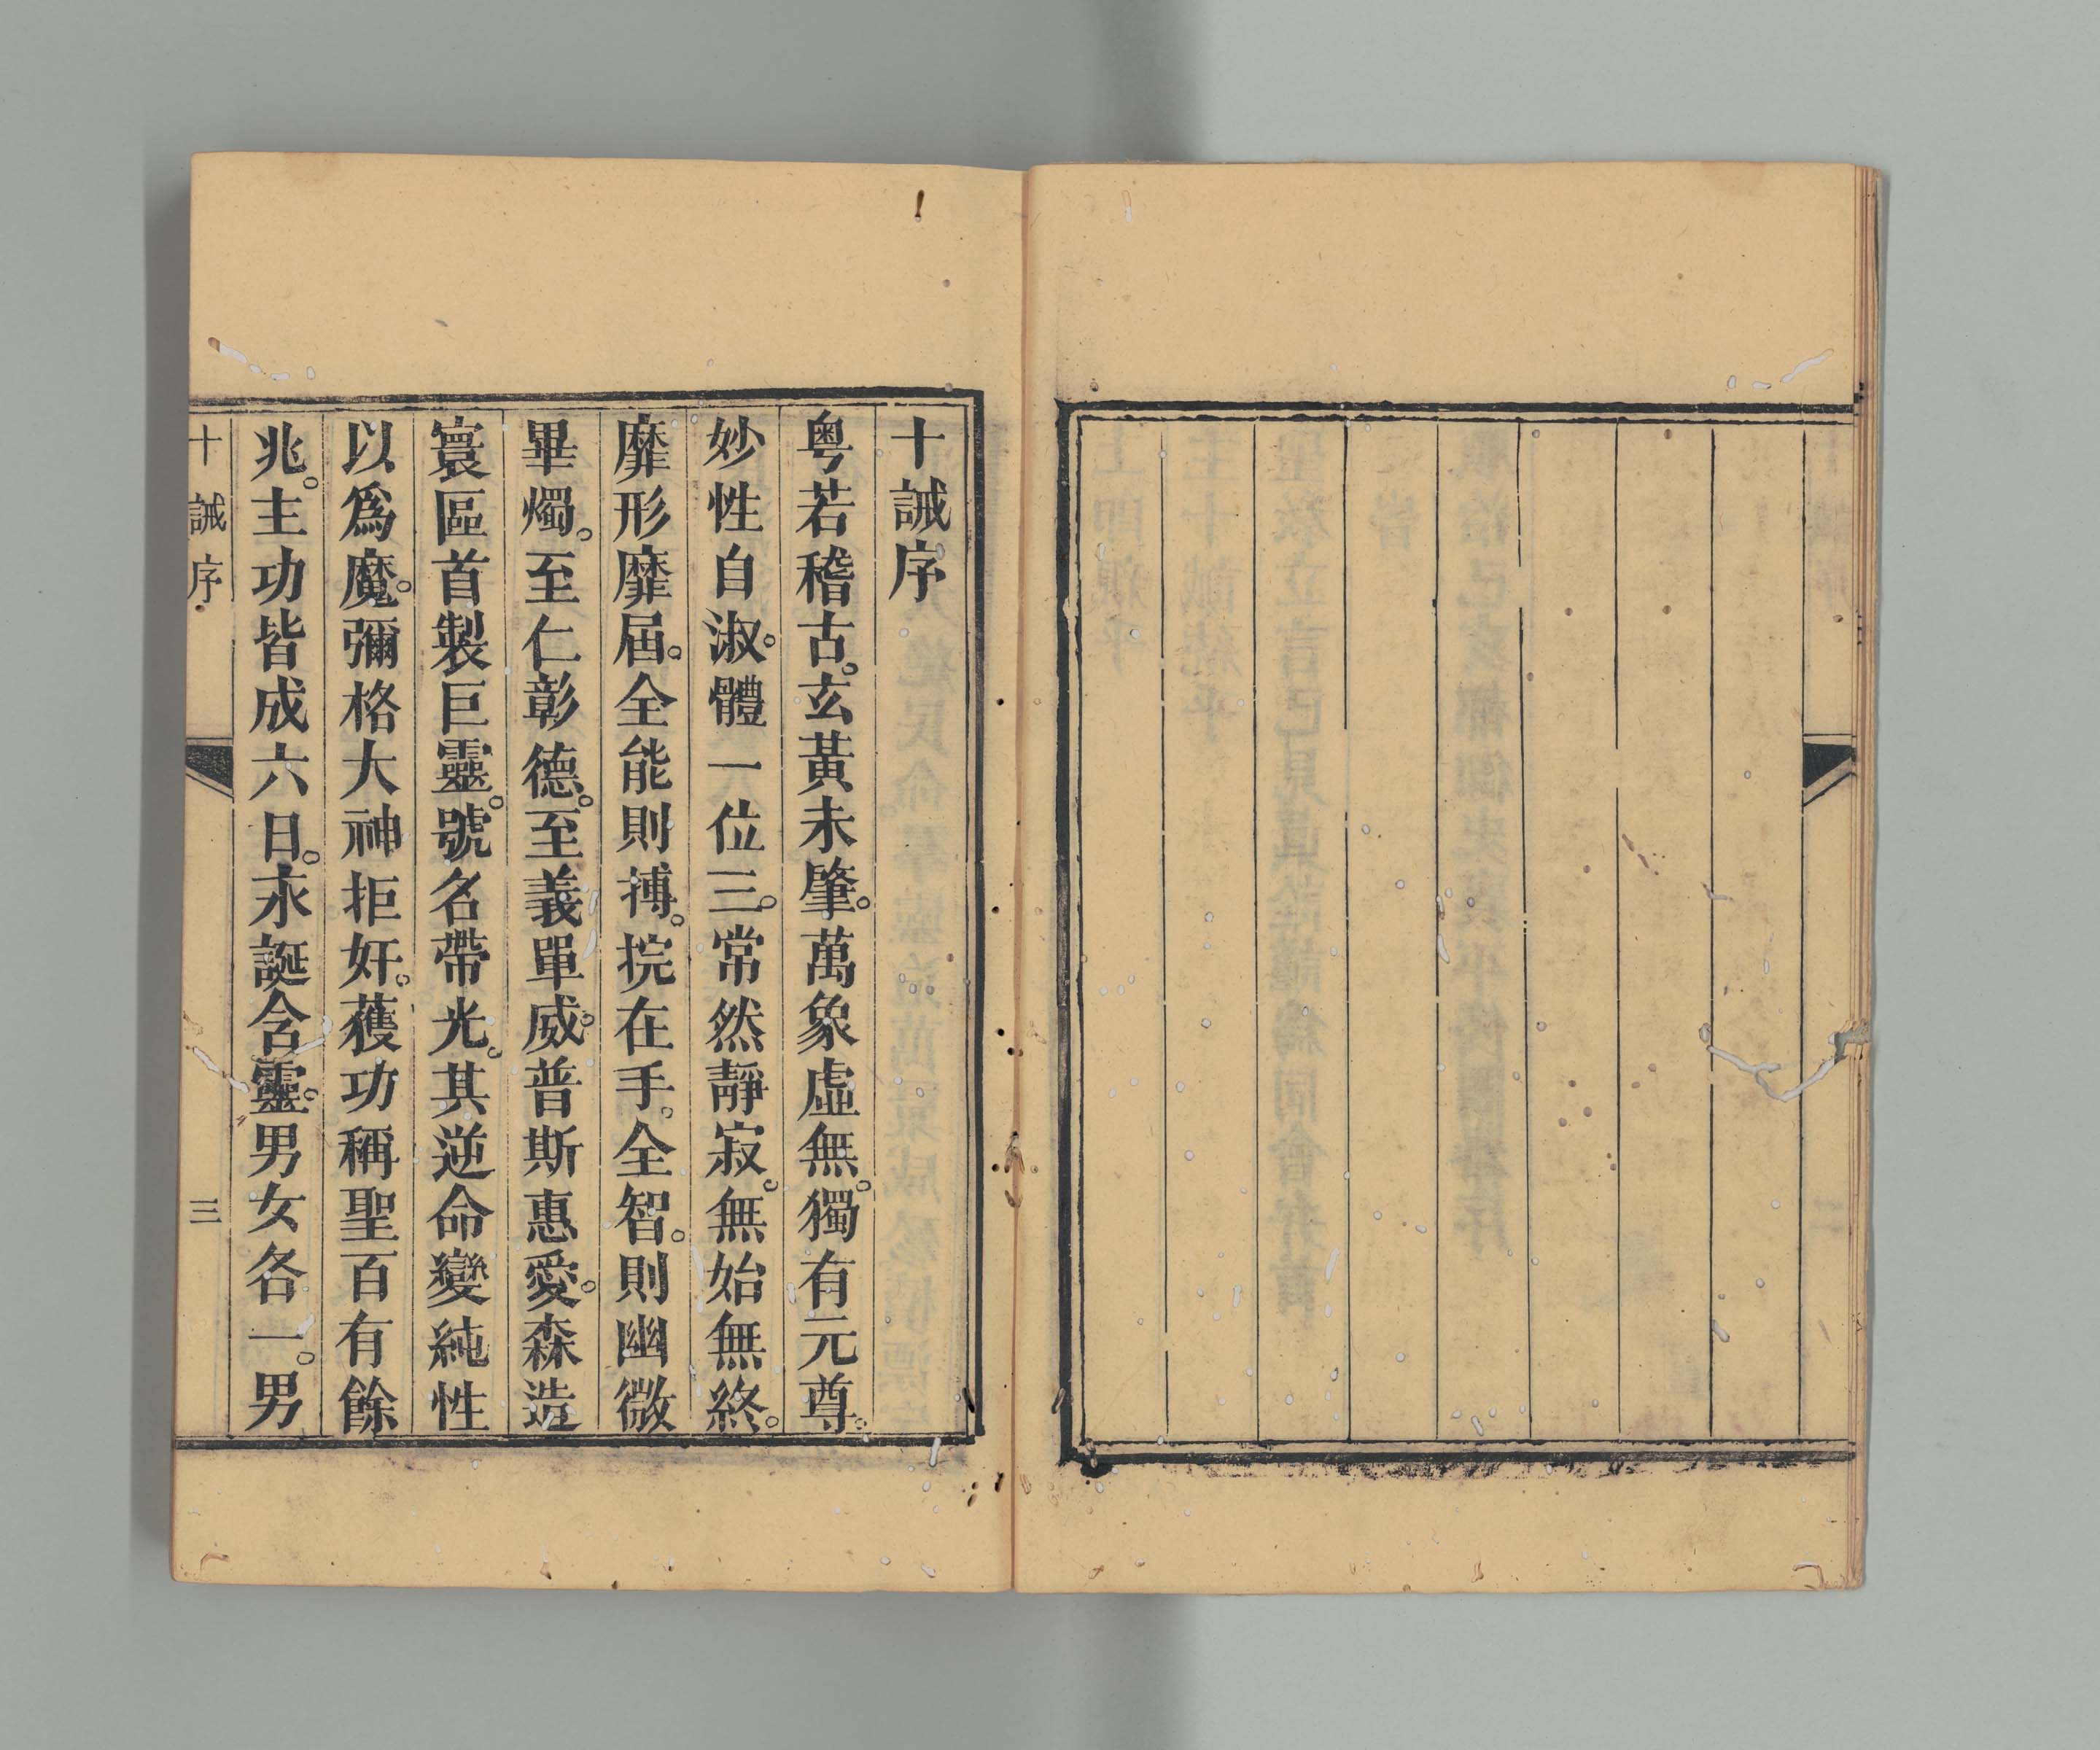 十誡序
粤若稽古。玄黃未肇。萬象虛無。獨有元尊。
妙性自淑。體一位三。常然靜寂。無始無終。
靡形靡屆。全能則搏。捖在手。全智。則幽微
畢燭。至仁彰德。至義單威。普斯惠愛。森造
寰區首製巨靈。號名帶光。其逆命變純性
以爲魔。彌格大神拒奸。獲功稱聖百有餘
兆。主功皆成六日。永誕含靈。男女各一。男
十誡序 三